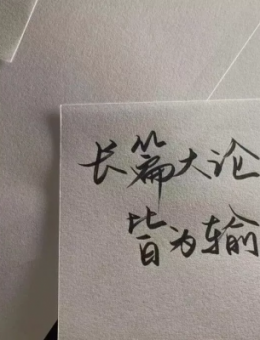 长篇大论
皆为输